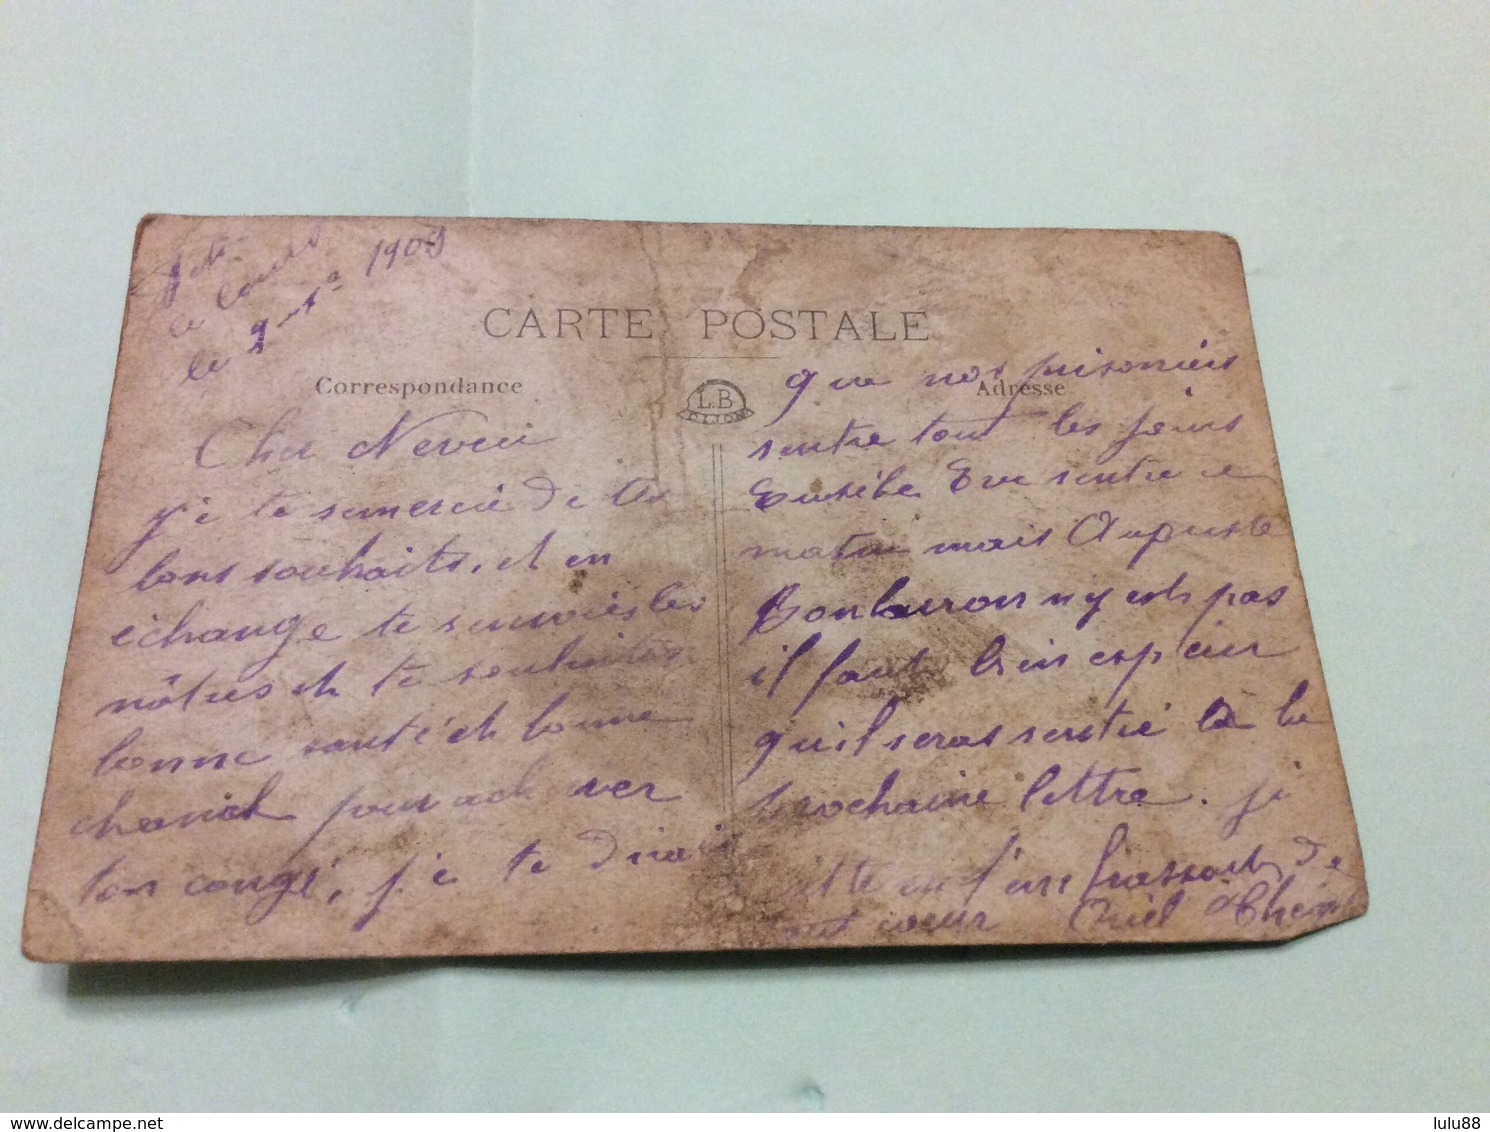 le 9-1a 1909
CARTE POSTALE
Correspondance
L.B
DIJON
Adresse
Cher Neveu
je te remercie de tes
bons souhaits, et en
échange te renvoies les
nôtres et te souhaites
bonne santé et bonne
chance pour achever
ton congé, je te dirais
que nos prisoniers
rentre tout les jours
Eusèbe Eve rentre ce
matin mais Auguste
Bonlauron n'y est pas
il faut bien espérer
qu'il seras rentré à la
prochaine lettre. je
cœur
lulu88